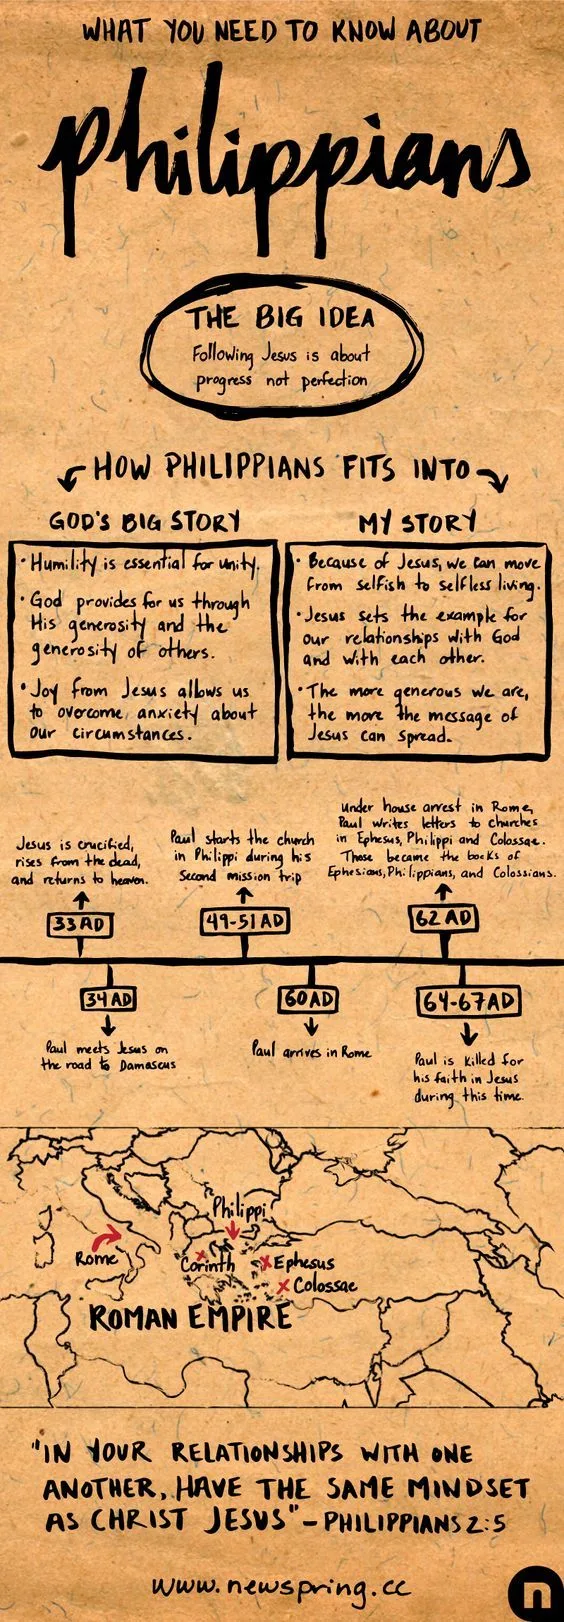 WHAT YOU NEED TO KNOW ABOUT
philippians
THE BIG IDEA
Following Jesus is about
progress not perfection
HOW PHILIPPIANS FITS INTO
GOD'S BIG STORY
• Humility is essential for unity.
• God provides for us through
His generosity and the
generosity of others.
• Joy from Jesus allows us
to overcome anxiety about
our circumstances.
MY STORY
• Because of Jesus, we can move
from selfish to selfless living.
• Jesus sets the example for
our relationships with God
and with each other.
• The more generous we are,
the more the message of
Jesus can spread.
Jesus is crucified,
rises from the dead,
and returns to heaven.
33 AD
Paul starts the church
in Philippi during his
second mission trip
49-51 AD
Under house arrest in Rome,
Paul writes letters to churches
in Ephesus, Philippi and Colossae.
Those became the books of
Ephesians, Philippians, and Colossians.
62 AD
34 AD
Paul meets Jesus on
the road to Damascus
60 AD
Paul arrives in Rome
64-67 AD
Paul is killed for
his faith in Jesus
during this time.
Philippi
Rome
Corinth
Ephesus
Colossae
ROMAN EMPIRE
"IN YOUR RELATIONSHIPS WITH ONE
ANOTHER, HAVE THE SAME MINDSET
AS CHRIST JESUS" - PHILIPPIANS 2:5
www.newspring.cc
n